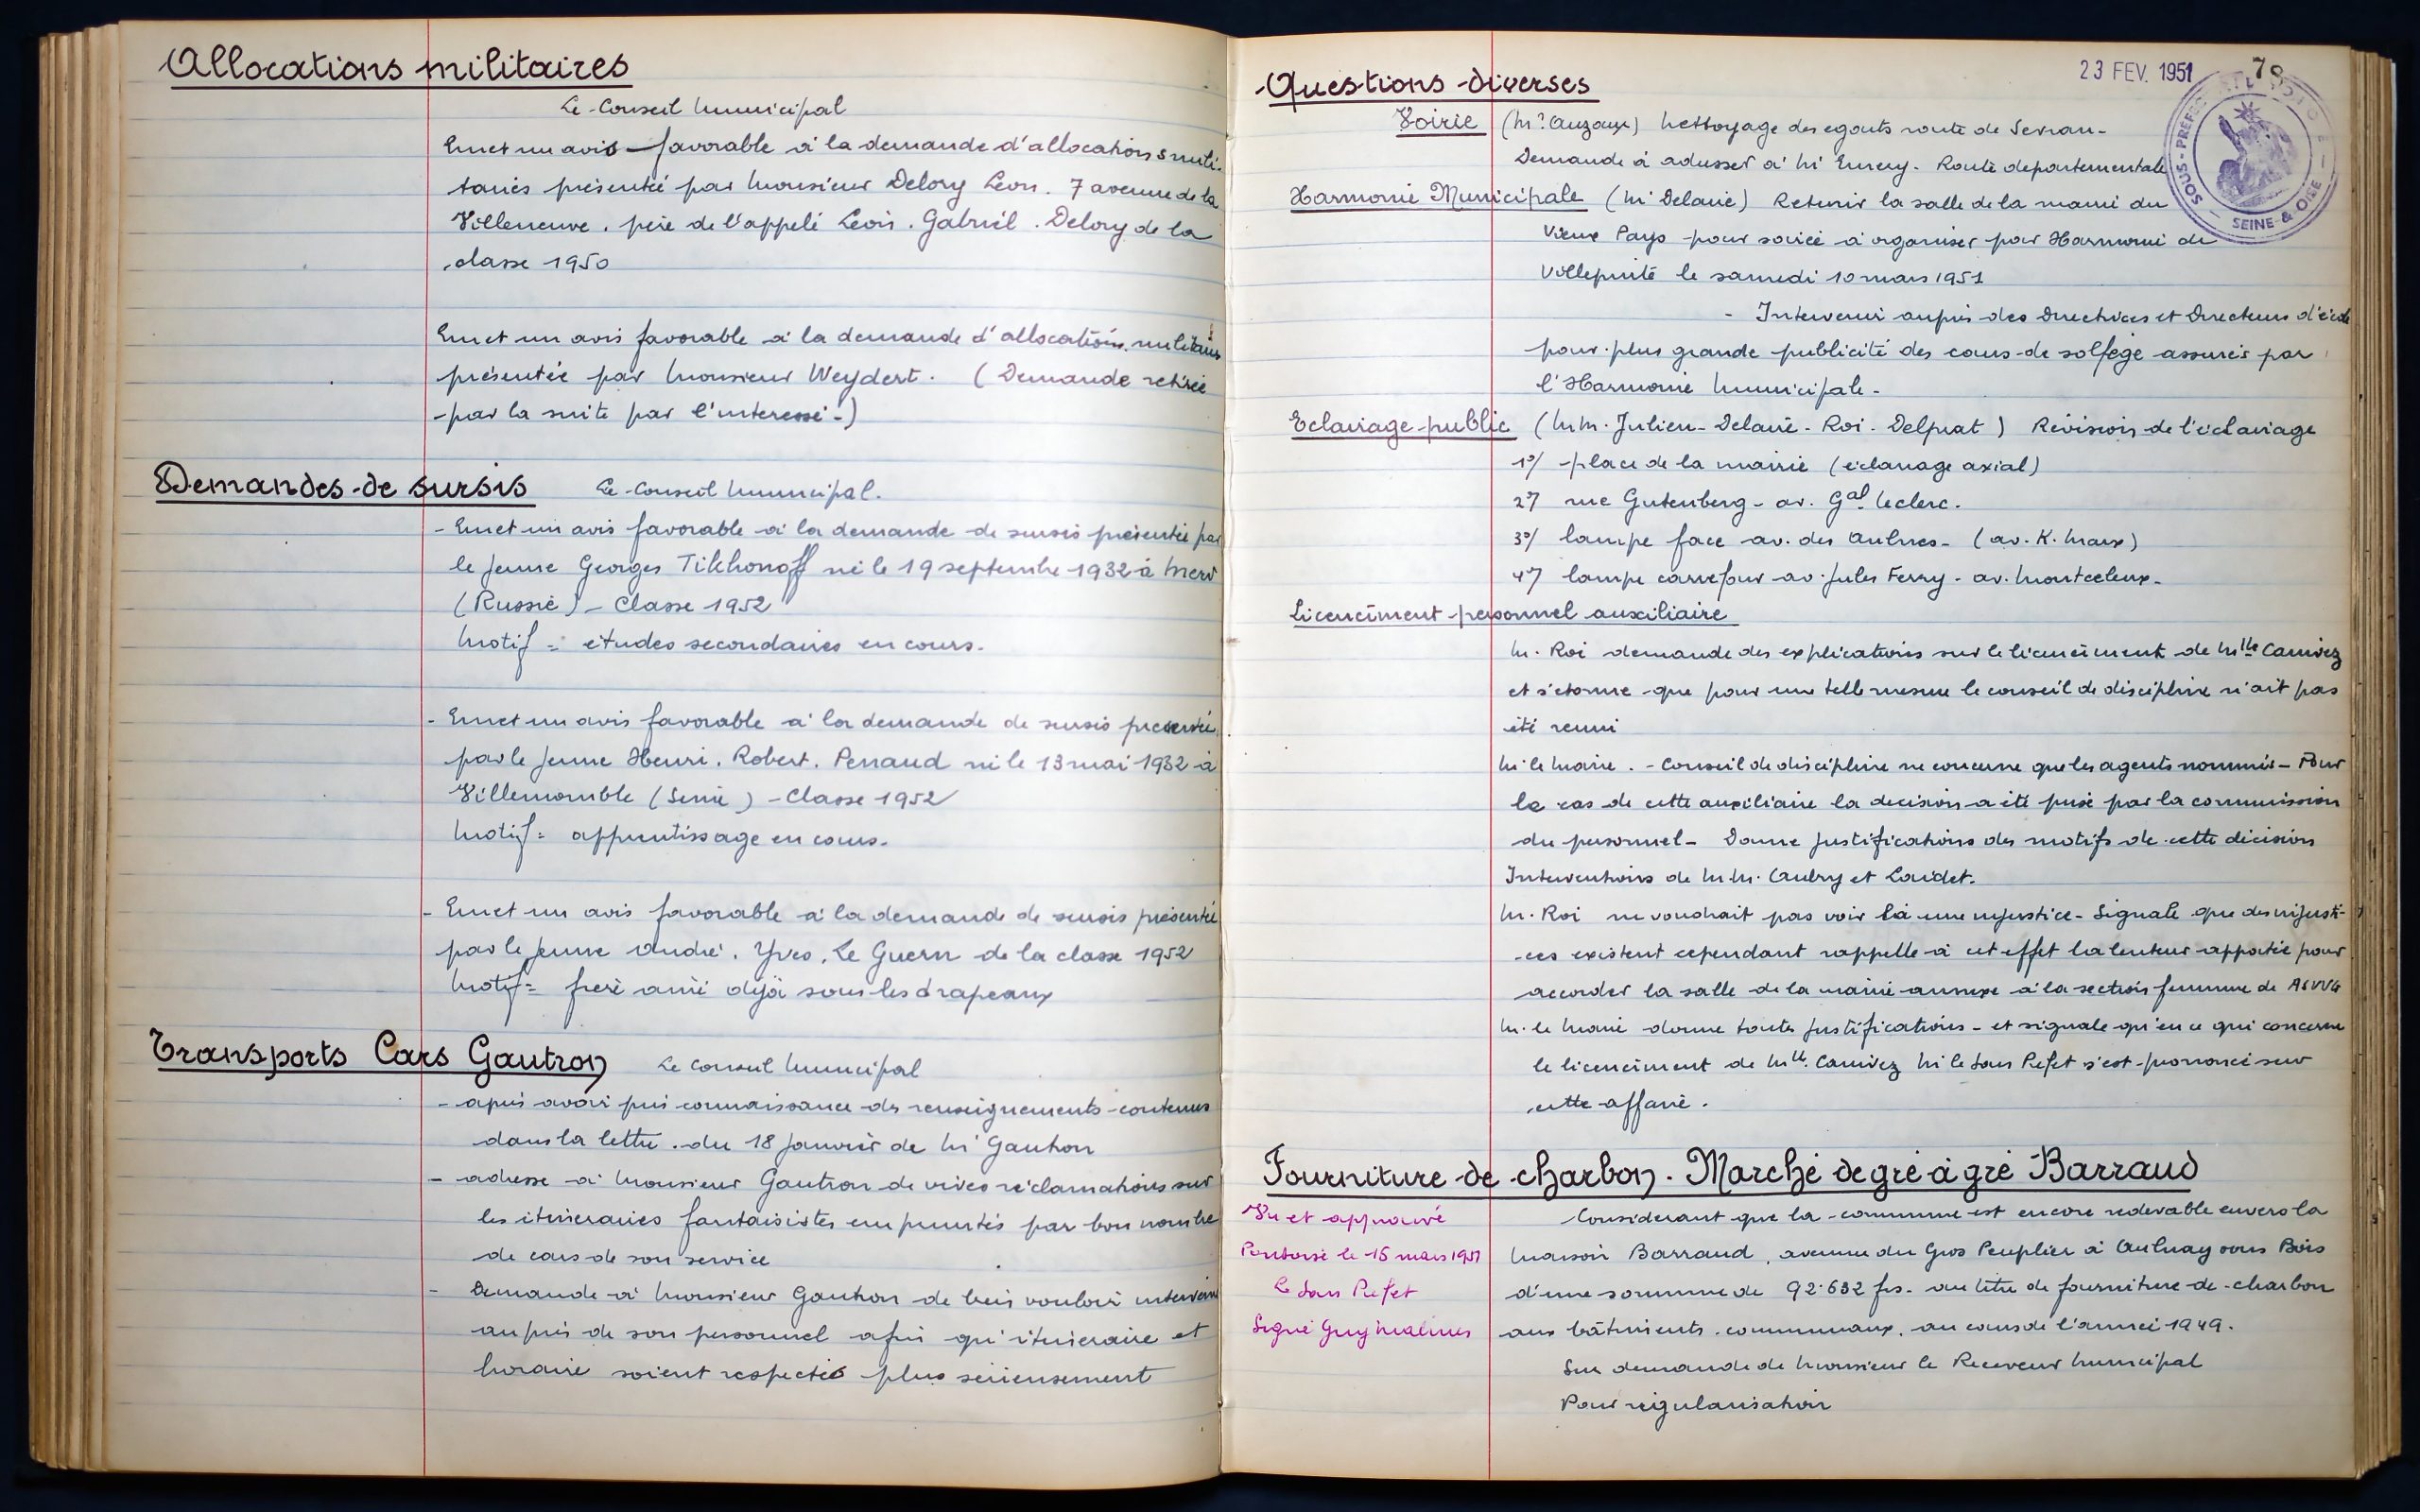 Allocations militaires
Le Conseil Municipal
Emet un avis favorable à la demande d'allocations mili-
taires présentée par Monsieur Delory Léon. 7 avenue de la
Villeneuve, père de l'appelé Léon. Gabriel. Delory de la
classe 1950
Emet un avis favorable à la demande d'allocations militaires
présentée par Monsieur Weydert. (Demande retirée
par la suite par l'interessé.)
Demandes de sursis Le Conseil Municipal.
- Emet un avis favorable à la demande de sursis présentée par
le jeune Georges Tikhonoff né le 19 septembre 1932 à Merv
(Russie) - Classe 1952
Motif = études secondaires en cours.
- Emet un avis favorable à la demande de sursis présentée
par le jeune Henri. Robert. Penaud né le 13 mai 1932 à
Villemomble (Seine) - Classe 1952
Motif = apprentissage en cours.
- Emet un avis favorable à la demande de sursis présentée
par le jeune André. Yves. Le Guern de la classe 1952
Motif = frère ainé déjà sous les drapeaux
Transports Cars Gautron Le Conseil Municipal
- après avoir pris connaissance des renseignements contenus
dans la lettre du 18 janvier de Mr Gautron
- adresse à Monsieur Gautron de vives réclamations sur
les itinéraires fantaisistes empruntés par bon nombre
de cars de son service
- Demande à Monsieur Gautron de bien vouloir intervenir
auprès de son personnel afin qu'itinéraire et
horaire soient respectés plus sérieusement
23 FEV. 1951
SOUS-PRÉFECTURE PONTOISE
SEINE & OISE
Questions diverses
Voirie (Mr Auzoux) Nettoyage des egouts route de Sevran -
Demande à adresser à Mr Emery. Route departementale
Harmonie Municipale (Mr Delaire) Retenir la salle de la mairie du
Vieux Pays pour soirée à organiser par Harmonie de
Villepinte le samedi 10 mars 1951
- Intervenir auprès des Directrices et Directeurs d'école
pour plus grande publicité des cours de solfège assurés par
l'Harmonie Municipale -
Eclairage public (MM. Julien - Delaire - Roi - Delprat) Révision de l'éclairage
1°/ place de la mairie (éclairage axial)
2°/ rue Gutenberg - av. Gal Leclerc.
3°/ lampe face av. des Aulnes - (av. K. Marx)
4°/ lampe carrefour av. Jules Ferry - av. Montceleux -
Licenciment personnel auxiliaire
M. Roi demande des explications sur le licenciment de Mlle Camivez
et s'étonne que pour une telle mesure le conseil de discipline n'ait pas
été reuni
M. le Maire. - Conseil de discipline ne concerne que les agents nommés - Pour
le cas de cette auxiliaire la decision a été prise par la commission
du personnel - Donne justifications des motifs de cette décision
Interventions de MM. Aubry et Loidet.
M. Roi ne voudrait pas voir là une injustice - Signale que des injusti-
-ces existent cependant rappelle à cet effet la lenteur apportée pour
accorder la salle de la mairie annexe à la section femme de ASVVG
M. le Maire donne toutes justifications - et signale qu'en ce qui concerne
le licenciment de Mlle Camivez Mr le Sous Prefet s'est prononcé sur
cette affaire.
Fourniture de charbon. Marché de gré à gré Barraud
Vu et approuvé
Pontoise le 15 mars 1951
Le Sous Prefet
Signé Guy Malines
Considerant que la commune est encore redevable envers la
Maison Barraud, avenue du Gros Peuplier à Aulnay sous Bois
d'une somme de 92.632 frs. au titre de fourniture de charbon
aux bâtiments communaux, au cours de l'année 1949.
Sur demande de Monsieur le Receveur Municipal
Pour régularisation